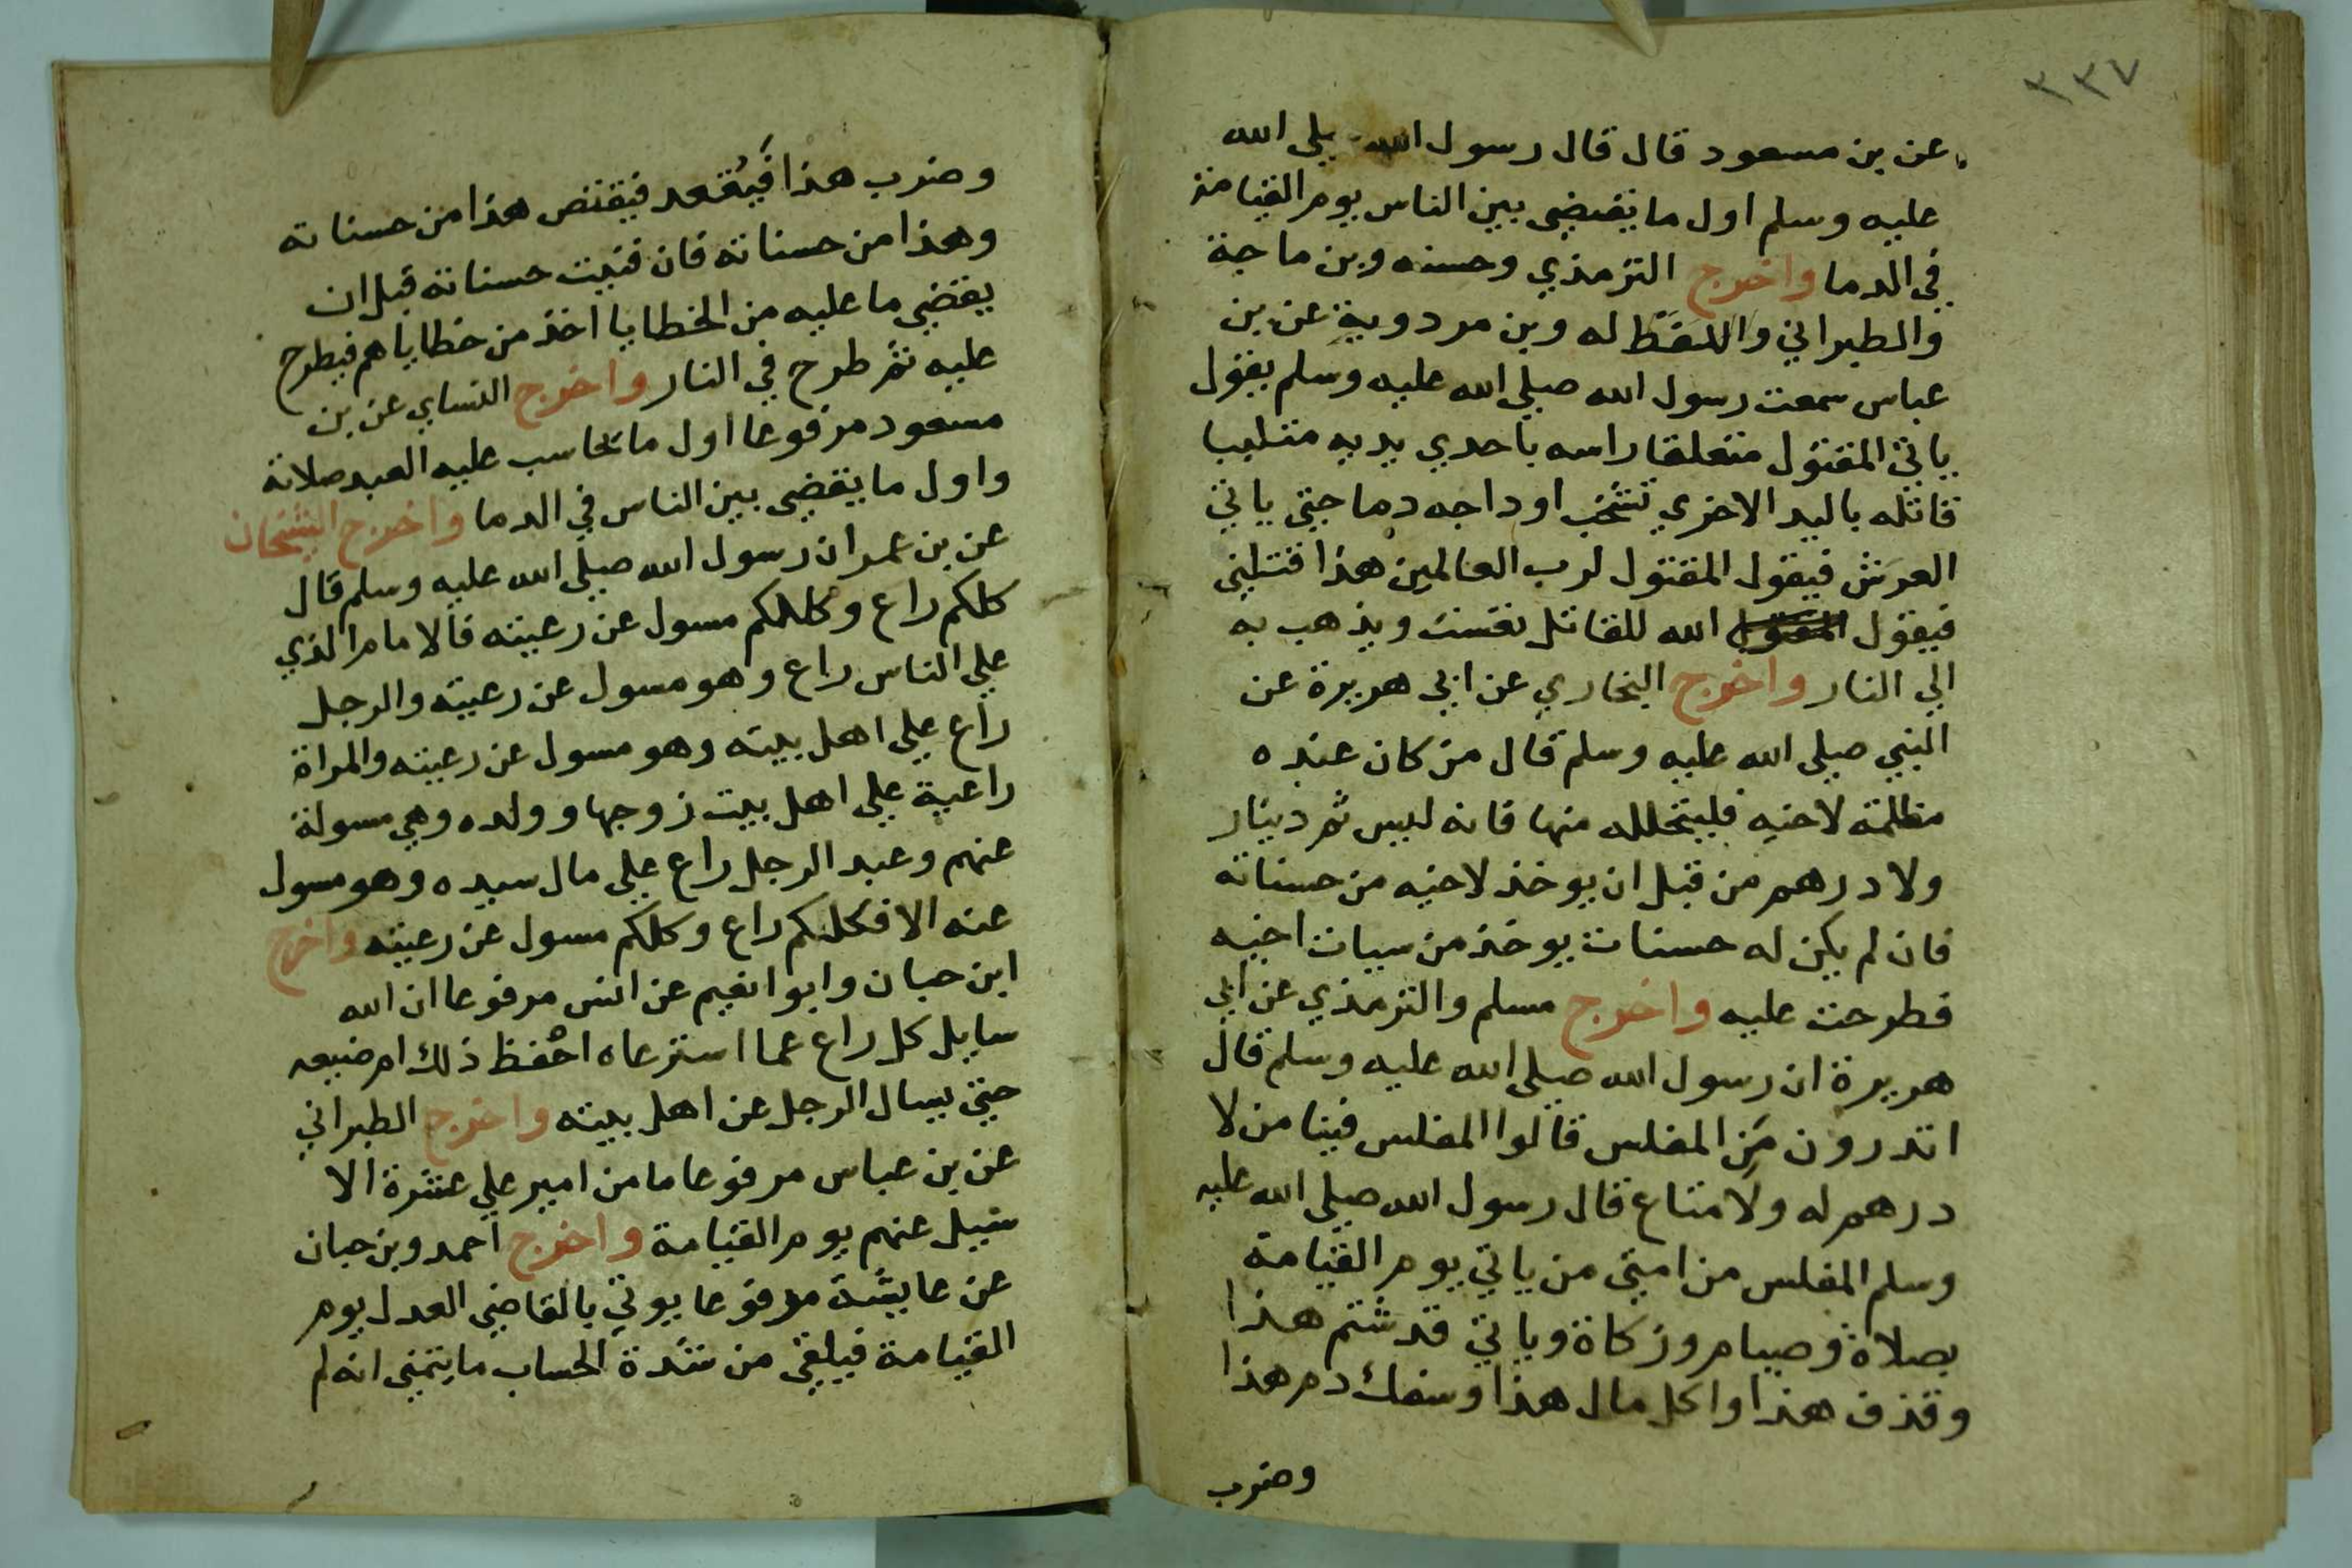 ٣٣٧
عن بن مسعود قال قال رسول الله صلى الله
عليه وسلم اول ما يقضي بين الناس يوم القيامة
في الدما واخرج الترمذي وحسنه وبن ماجة
والطبراني واللفظ له وبن مردوية عن بن
عباس سمعت رسول الله صلي الله عليه وسلم يقول
ياتي المقتول متعلقا راسه باحدي يديه متلببا
قاتله باليد الاخري تشخب اوداجه دما حتي ياتي
العرش فيقول المقتول لرب العالمين هذا قتلني
فيقول المقتول الله للقاتل تعست ويذهب به
الي النار واخرج البخاري عن ابي هريرة عن
النبي صلي الله عليه وسلم قال من كان عنده
مظلمة لاخيه فليتحلله منها فانه ليس ثم دينار
ولا درهم من قبل ان يوخذ لاخيه من حسناته
فان لم يكن له حسنات يوخذ من سيات اخيه
فطرحت عليه واخرج مسلم والترمذي عن ابي
هريرة ان رسول الله صلي الله عليه وسلم قال
اتدرون من المفلس قالوا المفلس فينا من لا
درهم له ولا متاع قال رسول الله صلي الله عليه
وسلم المفلس من امتي من ياتي يوم القيامة
بصلاة وصيام وزكاة وياتي قد شتم هذا
وقذف هذا واكل مال هذا وسفك دم هذا
وضرب
وضرب هذا فيُقعد فيقتص هذا من حسناته
وهذا من حسناته فان فنيت حسناته قبل ان
يقضي ما عليه من الخطايا اخذ من خطاياهم فيطرح
عليه ثم طرح في النار واخرج النساي عن بن
مسعود مرفوعا اول ما يحاسب عليه العبد صلاته
واول ما يقضي بين الناس في الدما واخرج الشيخان
عن بن عمر ان رسول الله صلي الله عليه وسلم قال
كلكم راع وكللكم مسول عن رعيته فالامام الذي
علي الناس راع وهو مسول عن رعيته والرجل
راع علي اهل بيته وهو مسول عن رعيته والمراة
راعية علي اهل بيت زوجها وولده وهي مسولة
عنهم وعبد الرجل راع علي مال سيده وهو مسول
عنه الا فكلكم راع وكلكم مسول عن رعيته واخرج
ابن حبان وابو انعيم عن انس مرفوعا ان الله
سايل كل راع عما استرعاه احفظ ذلك ام ضيعه
حتي يسال الرجل عن اهل بيته واخرج الطبراني
عن بن عباس مرفوعا ما من امير علي عشرة الا
سيل عنهم يوم القيامة واخرج احمد وبن حبان
عن عايشة مرفوعا يوتي بالقاضي العدل يوم
القيامة فيلقي من شدة الحساب ما يتمني انه لم